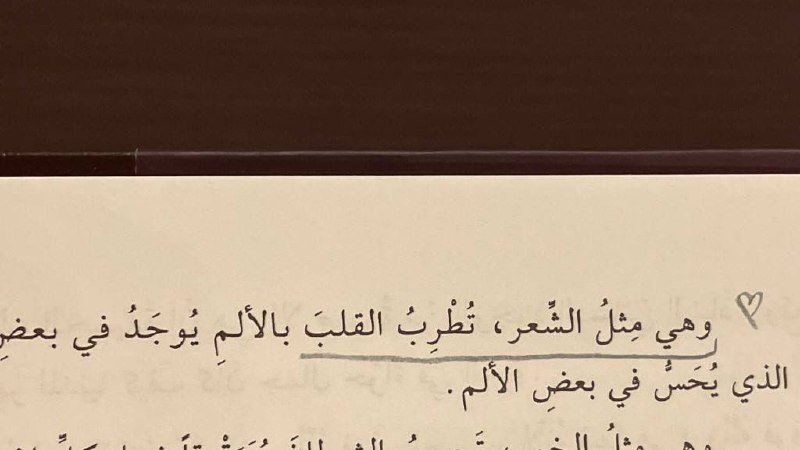 وهي مِثلُ الشِّعر، تُطْرِبُ القلبَ بالألمِ يُوجَدُ في بعضِ
الذي يُحَسُّ في بعضِ الألم.
وهي مثلُ